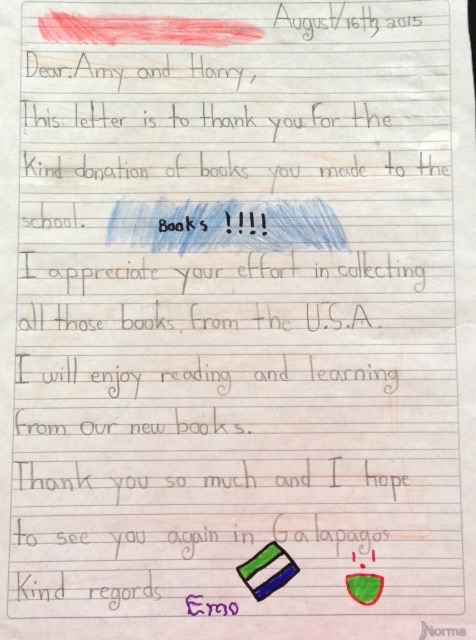 August/16th, 2015
Dear: Amy and Harry,
This letter is to thank you for the
Kind donation of books you made to the
school. Books !!!!
I appreciate your effort in collecting
all those books from the U.S.A.
I will enjoy reading and learning
from our new books.
Thank you so much and I hope
to see you again in Galapagos
Kind regords
Emo
Norma